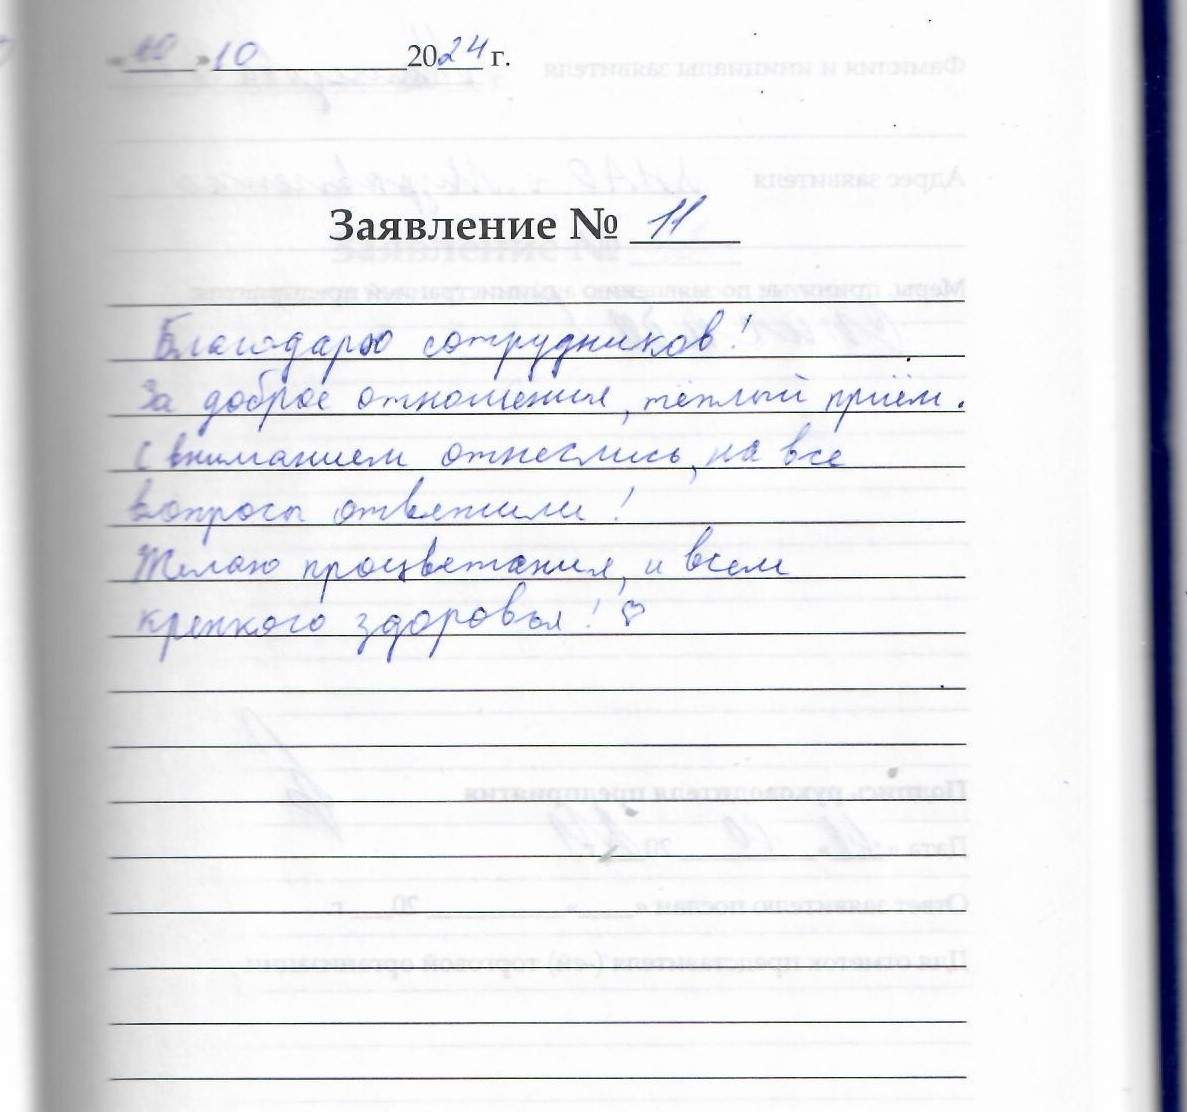 «10» 10 2024 г.
Заявление № 11
Благодарю сотрудников!
За доброе отношения, тёплый приём.
С вниманием отнеслись, на все
вопросы ответили!
Желаю процветания, и всем
крепкого здоровья! ♡